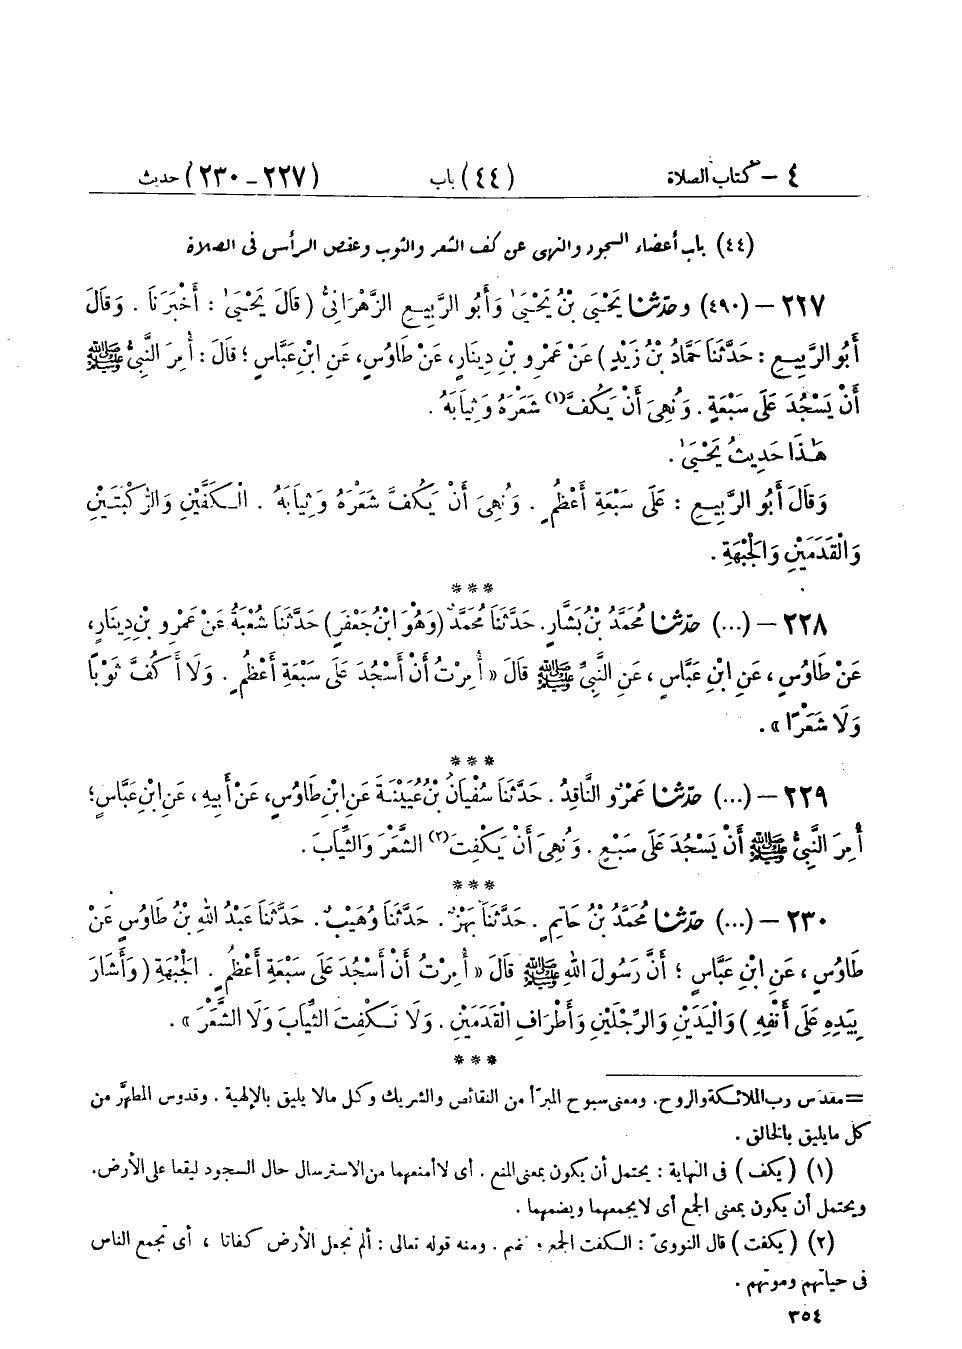 ٤ – كتاب الصلاة (٤٤) باب (٢٢٧ – ٢٣٠) حديث
(٤٤) باب أعضاء السجود والنهى عن كف الشعر والثوب وعقص الرأس فى الصلاة
٢٢٧ – (٤٩٠) وحَدَّثَنَا يَحْيَىٰ بْنُ يَحْيَىٰ وَأَبُو الرَّبِيعِ الزَّهْرَانِيُّ (قَالَ يَحْيَىٰ : أَخْبَرَنَا . وَقَالَ
أَبُو الرَّبِيعِ : حَدَّثَنَا حَمَّادُ بْنُ زَيْدٍ) عَنْ عَمْرِو بْنِ دِينَارٍ، عَنْ طَاوُسٍ، عَنِ ابْنِ عَبَّاسٍ ؛ قَالَ : أُمِرَ النَّبِيُّ ﷺ
أَنْ يَسْجُدَ عَلَى سَبْعَةٍ . وَنُهِىَ أَنْ يَكُفَّ(١) شَعَرَهُ وَثِيَابَهُ .
هَٰذَا حَدِيثُ يَحْيَىٰ .
وَقَالَ أَبُو الرَّبِيعِ : عَلَى سَبْعَةِ أَعْظُمٍ . وَنُهِىَ أَنْ يَكُفَّ شَعْرَهُ وَثِيَابَهُ . الْكَفَّيْنِ وَالرُّكْبَتَيْنِ
وَالْقَدَمَيْنِ وَالْجَبْهَةِ .
***
٢٢٨ – (...) حَدَّثَنَا مُحَمَّدُ بْنُ بَشَّارٍ. حَدَّثَنَا مُحَمَّدٌ (وَهُوَ ابْنُ جَعْفَرٍ) حَدَّثَنَا شُعْبَةُ عَنْ عَمْرِو بْنِ دِينَارٍ،
عَنْ طَاوُسٍ ، عَنِ ابْنِ عَبَّاسٍ ، عَنِ النَّبِيِّ ﷺ قَالَ « أُمِرْتُ أَنْ أَسْجُدَ عَلَى سَبْعَةِ أَعْظُمٍ . وَلَا أَكُفَّ ثَوْبًا
وَلَا شَعَرًا » .
***
٢٢٩ – (...) حَدَّثَنَا عَمْرٌو النَّاقِدُ . حَدَّثَنَا سُفْيَانُ بْنُ عُيَيْنَةَ عَنِ ابْنِ طَاوُسٍ، عَنْ أَبِيهِ ، عَنِ ابْنِ عَبَّاسٍ؛
أُمِرَ النَّبِيُّ ﷺ أَنْ يَسْجُدَ عَلَى سَبْعٍ . وَنُهِىَ أَنْ يَكْفِتَ(٢) الشَّعَرَ وَالثِّيَابَ .
***
٢٣٠ – (...) حَدَّثَنَا مُحَمَّدُ بْنُ حَاتِمٍ . حَدَّثَنَا بَهْزٌ . حَدَّثَنَا وُهَيْبٌ . حَدَّثَنَا عَبْدُ اللهِ بْنُ طَاوُسٍ عَنْ
طَاوُسٍ ، عَنِ ابْنِ عَبَّاسٍ ؛ أَنَّ رَسُولَ اللهِ ﷺ قَالَ « أُمِرْتُ أَنْ أَسْجُدَ عَلَى سَبْعَةِ أَعْظُمٍ . الْجَبْهَةِ (وَأَشَارَ
بِيَدِهِ عَلَى أَنْفِهِ) وَالْيَدَيْنِ وَالرِّجْلَيْنِ وَأَطْرَافِ الْقَدَمَيْنِ . وَلَا نَكْفِتَ الثِّيَابَ وَلَا الشَّعَرَ » .
***
= مقدس رب الملائكة والروح. ومعنى سبوح المبرّأ من النقائص والشريك وكل مالا يليق بالإلهية . وقدوس المطهَّر من
كل مايليق بالخالق .
(١) (يكف) فى النهاية : يحتمل أن يكون بمعنى المنع . أى لاأمنعهما من الاسترسال حال السجود ليقعا على الأرض.
ويحتمل أن يكون بمعنى الجمع أى لايجمعهما ويضمهما .
(٢) (يكفت) قال النووىّ : الكفت الجمع و ضم . ومنه قوله تعالى : ألم نجعل الأرض كفاتا ، أى تجمع الناس
فى حياتهم وموتهم .
٣٥٤